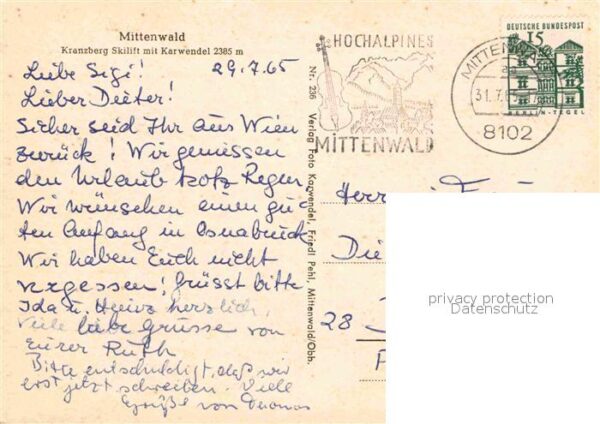 Mittenwald
Kranzberg Skilift mit Karwendel 2385 m
Liebe Sigi! 29.7.65
Lieber Dieter!
Sicher seid Ihr aus Wien
zurück! Wir geniessen
den Urlaub trotz Regen,
Wir wünschen einen gu-
ten Anfang in Osnabrück,
Wir haben Euch nicht
vergessen! Grüsst bitte
Ida u. Heinz herzlich,
Viele liebe Grüsse von
Eurer Ruth
Bitte entschuldigt, daß wir
erst jetzt schreiben. Viele
Grüße von
Nr. 236 Verlag Foto Karwendel, Friedl Pehl, Mittenwald/Obb.
HOCHALPINES
MITTENWALD
MITTENWALD
31.7.
8102
DEUTSCHE BUNDESPOST
15
BERLIN-TEGEL
Herr
Di
28
privacy protection
Datenschutz